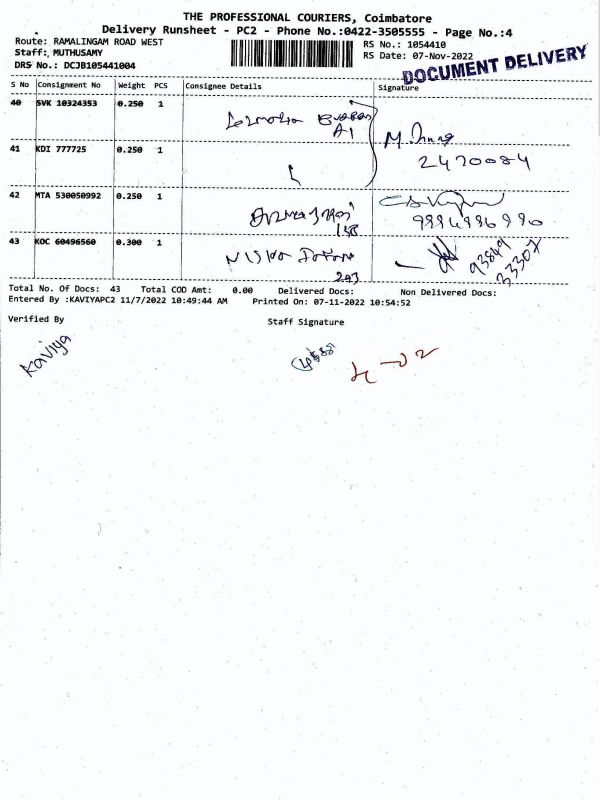 THE PROFESSIONAL COURIERS, Coimbatore
Delivery Runsheet - PC2 - Phone No.:0422-3505555 - Page No.:4
Route: RAMALINGAM ROAD WEST
RS No.: 1054410
Staff:, MUTHUSAMY
RS Date: 07-Nov-2022
DRS No.: DCJB105441004
DOCUMENT DELIVERY
S No Consignment No Weight PCS Consignee Details Signature
40 SVK 10324353 0.250 1
A1
41 KDI 777725 0.250 1
2470084
42 MTA 530050992 0.250 1
9994996990
43 KOC 60496560 0.300 1
93849
33307
Total No. Of Docs: 43 Total COD Amt: 0.00 Delivered Docs: Non Delivered Docs:
Entered By :KAVIYAPC2 11/7/2022 10:49:44 AM Printed On: 07-11-2022 10:54:52
Verified By Staff Signature
Kaviya